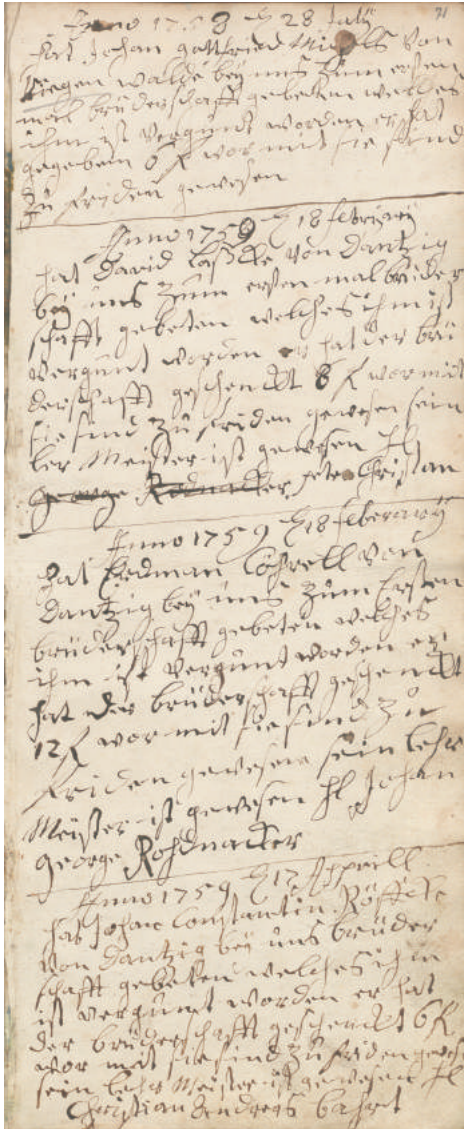 31
Anno 1758 d 28 July
hat Johan gottfried Michels von
bey uns zum ersten
mall brüderschafft gebeten welches
ihm ist vergundt worden er hat
gegeben 6 fl wor mit sie sind
zu friden gewesen
Anno 1759 d 18 februarÿ
hat David von Dantzig
beÿ uns zum ersten mal brüder
schafft gebeten welches ihm ist
vergunt worden er hat der brü
derschafft geschenckt 6 fl wor mit
sie sind zu friden gewesen sein
ler Meister ist gewesen H
George Rodnacker Peter Christan
Anno 1759 d 18 feberarÿ
hat Erdman von
Dantzig beÿ uns zum Ersten
brüderschafft gebeten welches
ihm ist vergunt worden er
hat der brüderschafft geschenckt
12 fl wor mit sie sind zu
friden gewesen sein lehr
Meister ist gewesen H Johan
George Rohdnacker
Anno 1759 d 17 Apprill
hat Johan Constantin Röffcke
von Dantzig beÿ uns brüder
schafft gebeten welches ihm
ist vergunt worden er hat
der brüderschafft geschenckt 6 fl
wor mit sie sind zu friden gewesen
sein lehr Meister ist gewesen H
Christian Endregs bahrt